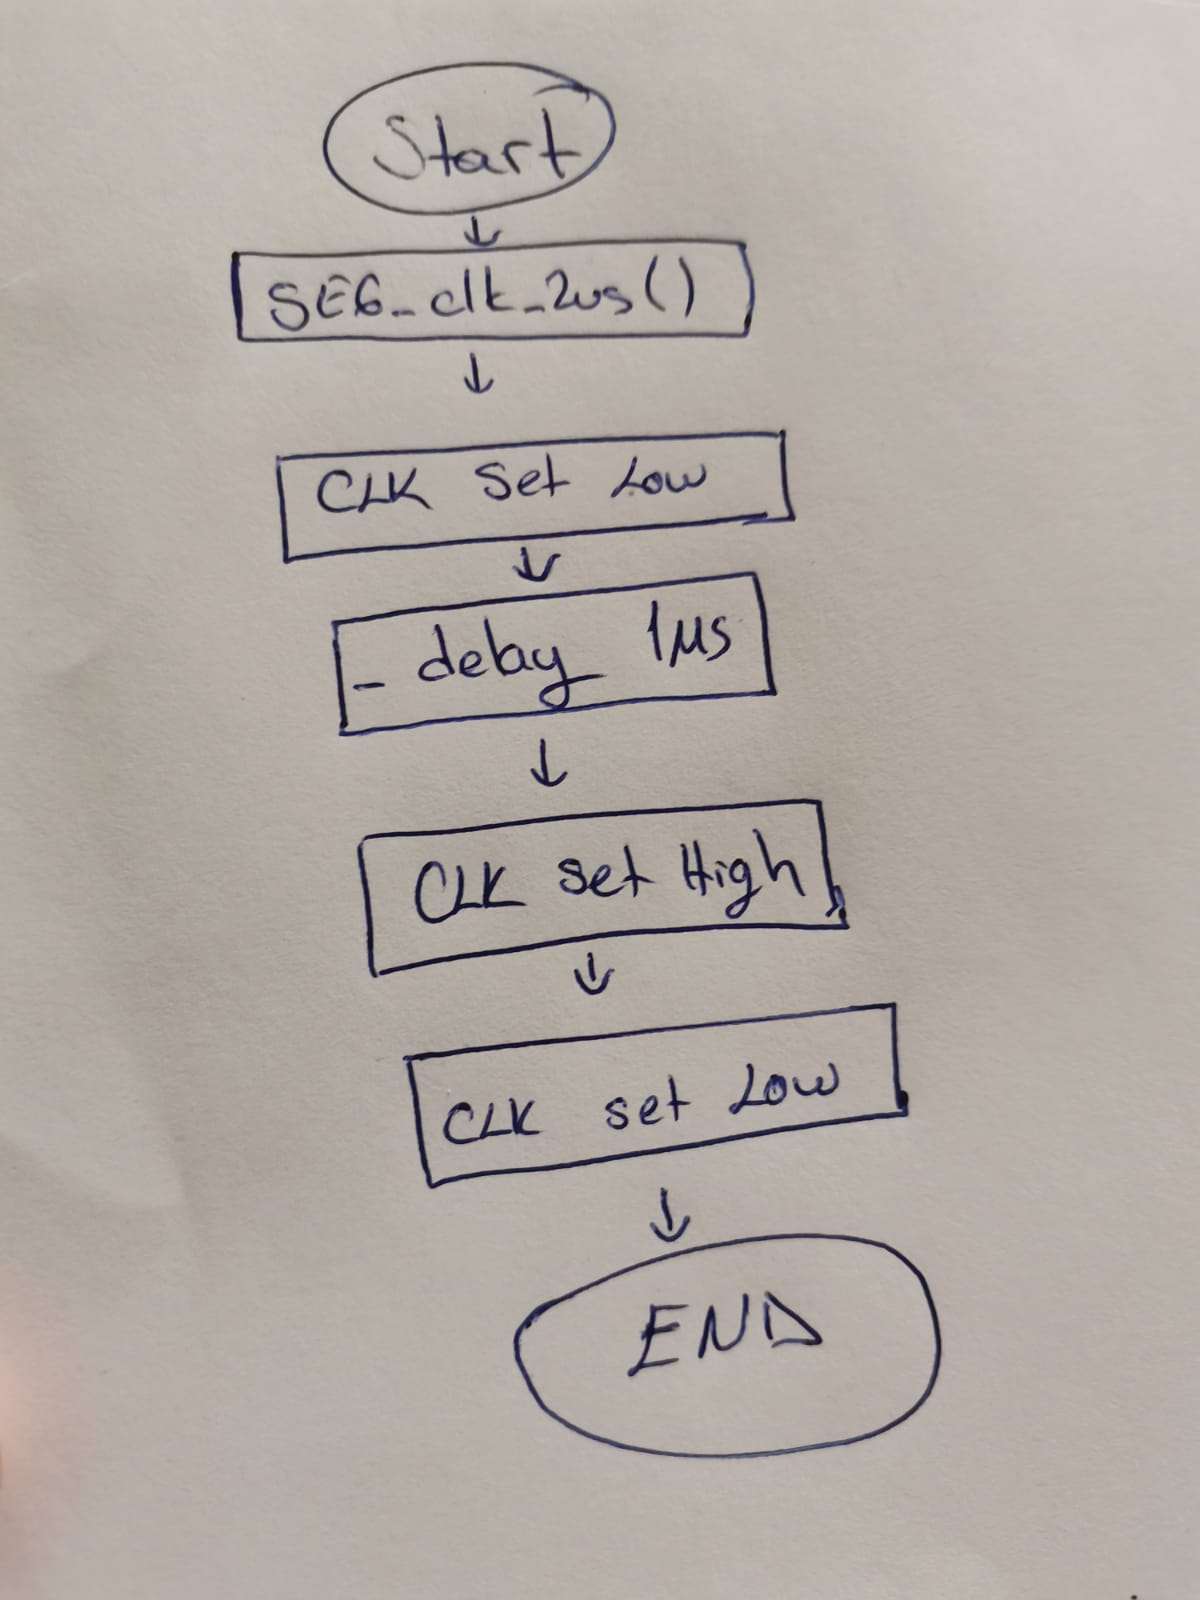 Start
SEG_clk_2us()
CLK Set Low
_delay_ 1μs
CLK set High
CLK set Low
END